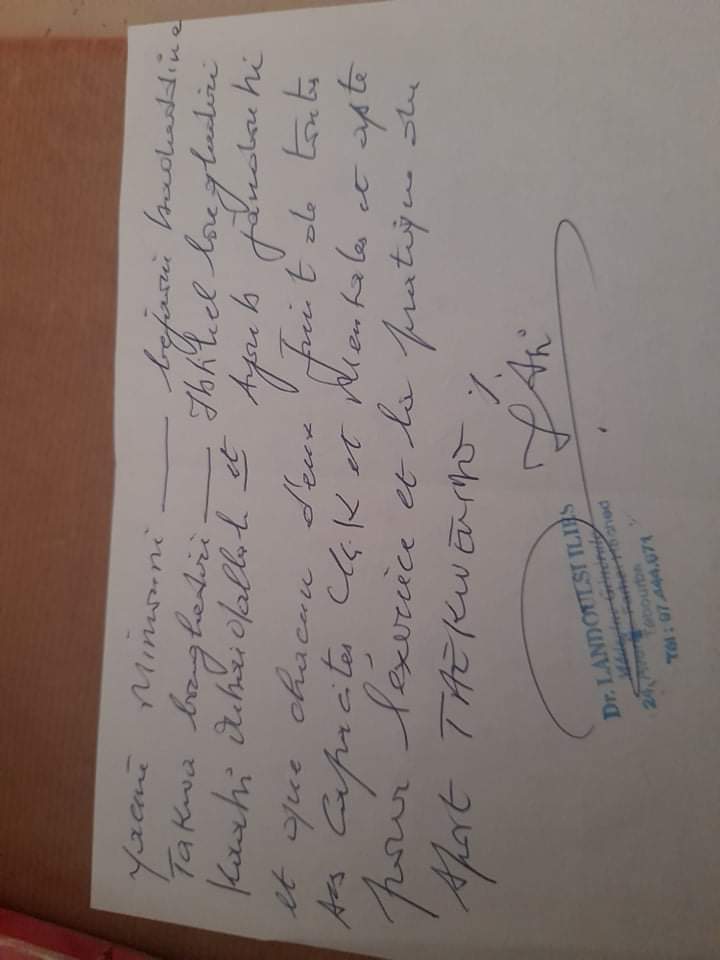 Yacine Mimouni — bejaoui badreddine
Takwa boughediri — Ibtihel boughediri
Kaabi Oubaidallah et Ayoub jandoubi
et que chacun d'eux jouit de toutes
ses capacités et Mentales et apte
pour l'exercice et la pratique du
sport TAEKWENDO ./.
Dr. LANDOULSI ILIES
Médecin Généraliste
Tel : 97.444.071